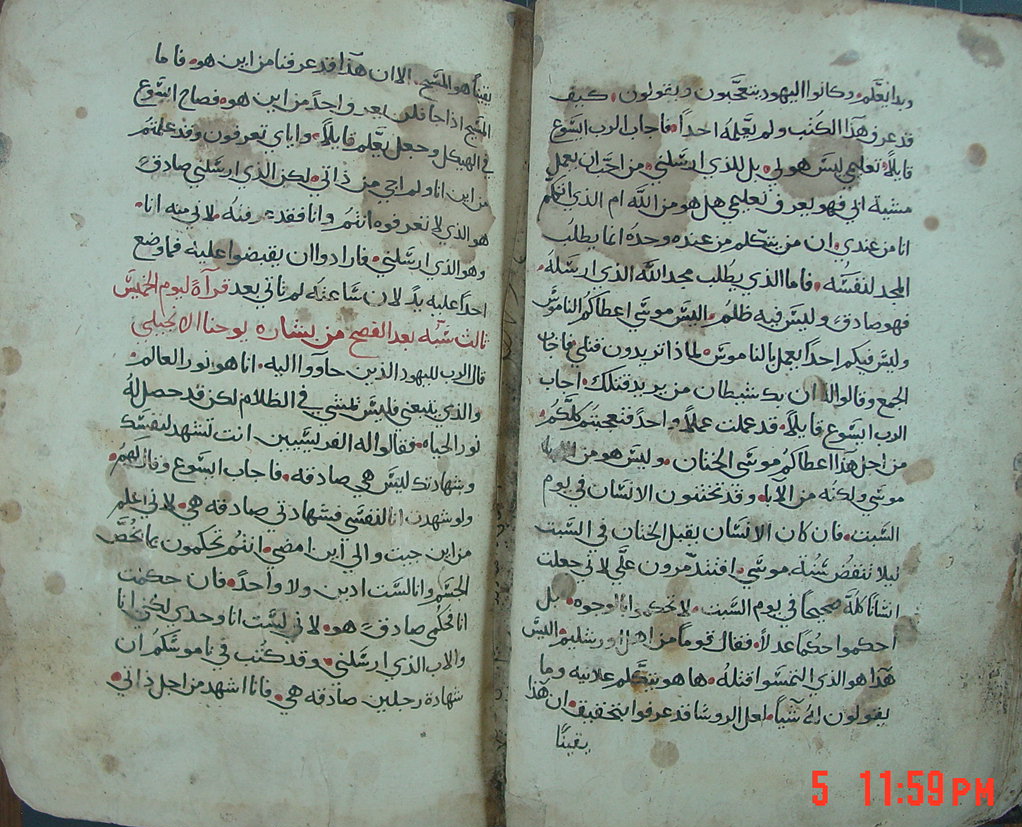 وبدا يعلم. وكانوا اليهود يتعجبون ويقولون. كيف
قد عرف هذا الكتب ولم يعلمه احداً. فاجاب الرب ايسوع
قايلاً. تعليمي ليس هو لي. بل للذي ارسلني. من احب ان يعمل
مشيته اني فهو يعرف تعليمي هل هو من الله ام الذي اتكلم
انا من عندي. ان من يتكلم من عنده وحده انما يطلب
المجد لنفسه. فاما الذي يطلب مجد الله الذي ارسله.
فهو صادق وليس فيه ظلم. اليس موسى اعطاكم الناموس
وليس فيكم احداً يعمل بالناموس. لماذا تريدون قتلي فاجاب
الجمع وقالوا ان بك شيطان من يريد قتلك. اجاب
الرب ايسوع قايلاً. قد عملت عملاً واحداً فتعجبتم كلكم.
من اجل هذا اعطاكم موسى الختان. وليس هو من
موسى ولكنه من الابا. وقد تختنون الانسان في يوم
السبت. فان كان الانسان يقبل الختان في السبت
ليلا تنقض سنة موسى. افتتذمرون علي لاني جعلت
انساناً كله صحيحاً في يوم السبت. لا تحكموا بالوجوه. بل
احكموا حكماً عدلاً. فقال قوماً من اهل اورشليم. اليس
هذا هو الذي التمسوا قتله. ها هو يتكلم علانيه وما
يقولون له شياً. لعل الروسا قد عرفوا بتحقيق. ان هذا
يقيناً
يقيناً هو المسيح. الا ان هذا قد عرفنا من اين هو. فاما
المسيح اذا جا فلن يعرف واحداً من اين هو. فصاح ايسوع
في الهيكل وجعل يعلم قايلاً. واياي تعرفون وقد علمتم
من اين انا ولم اجي من ذاتي. لكن الذي ارسلني صادق
هو الذي لا تعرفوه انتم. وانا فقد عرفته. لاني منه انا.
وهو الذي ارسلني. فارادوا ان يقبضوا عليه فما وضع
احداً عليه يد لان ساعته لم تاتي بعد قرآة ليوم الخميس
ثالث سبة بعد الفصح من بشاره يوحنا الانجيلي
قال الرب لليهود الذين جاووا اليه. انا هو نور العالم.
والذي يتبعني فليس تمشي في الظلام لكن قد حصل له
نور الحياه. فقالوا له الفريسيين انت تشهد لنفسك
وشهادتك ليس هي صادقه. فاجاب ايسوع وقال لهم.
ولو شهدت انا لنفسي فشهادتي صادقه هي. لاني اعلم
من اين جيت والى اين امضي. انتم تحكمون بما يخص
الجسم وانا لست ادين ولا واحداً. فان حكمت
انا فحكمي صادق هو. لاني لست انا وحدي لكني انا
والاب الذي ارسلني. وقد كتب في ناموسكم ان
شهادة رجلين صادقه هي. فانا اشهد من اجل ذاتي.
5 11:59 PM